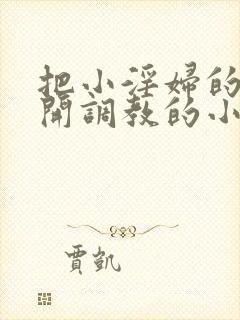 把小淫婦的
開調教的小
賈凱